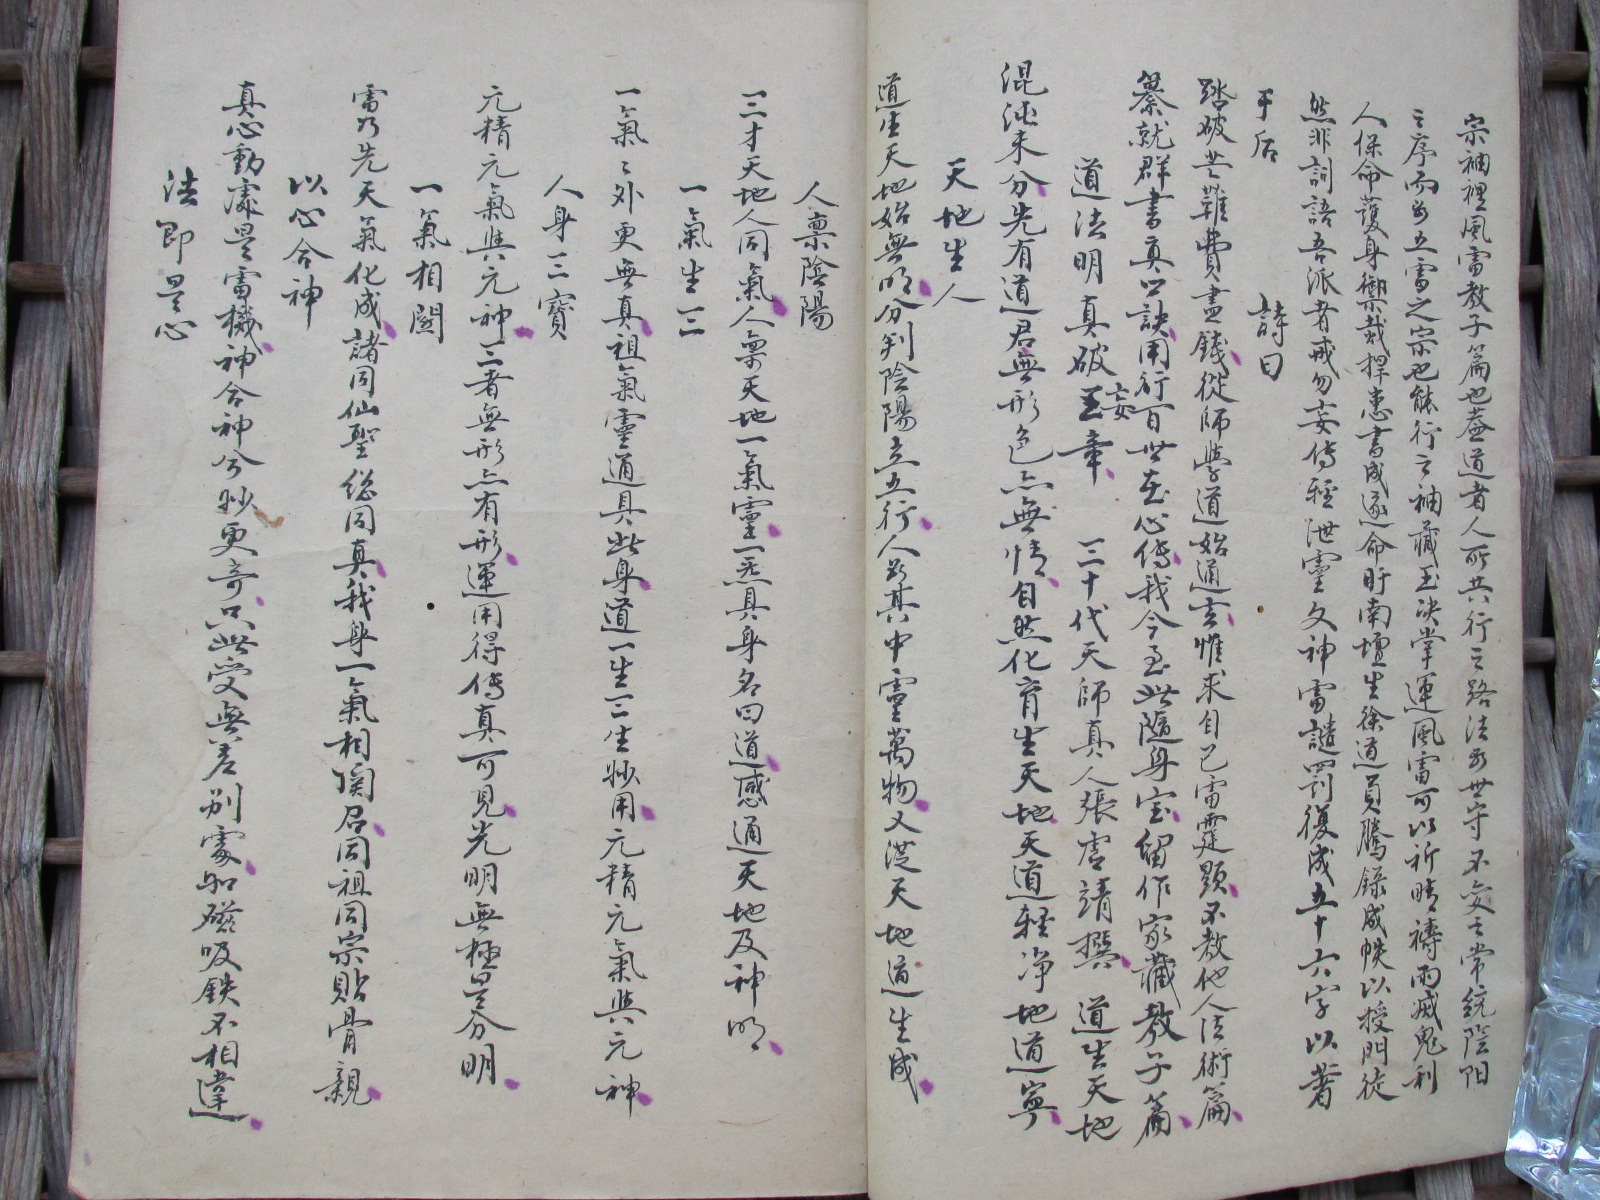 宗袖裡風雷教子篇也蓋道者人所共行之路法為世守不変之常統陰阳
之序而為五雷之宗也能行之袖藏玉决掌運風雷可以祈晴禱雨滅鬼利
人保命護身禦栽捍患書成遂命盱南壇生徐道員騰錄成帙以授門徒
然非詞語吾派者戒勿妄傳輕泄靈文神雷譴罰復成五十六字以著
于后　詩曰
踏破芒鞋費盡錢從師學道始通玄惟求自己雷霆顯不教他人法術篇
纂就群書真口訣用行百世在心傳我今至此隨身宝留作家藏教子篇
道法明真破妄章　三十代天師真人張虛靖撰　道生天地
混沌未分先有道君無形色亦無情自然化育生天地天道輕净地道寧
天地生人
道生天地始無明分判陰陽立五行人於其中靈萬物又從天地道生成
人禀陰陽
三才天地人同氣人禀天地一氣靈一炁具身名曰道感通天地及神明
一氣生三
一氣之外更無真祖氣靈通具此身道一生二三生妙用元精元氣與元神
人身三寶
元精元氣與元神三者無形亦有形運用得傳真可見光明無極是分明
一氣相関
雷乃先天氣化成諸同仙聖總同真我身一氣相関召同祖同宗貼骨親
以心合神
真心動處是雷機神合神兮妙更奇只此受無差別處如磁吸鉄不相違
法即是心